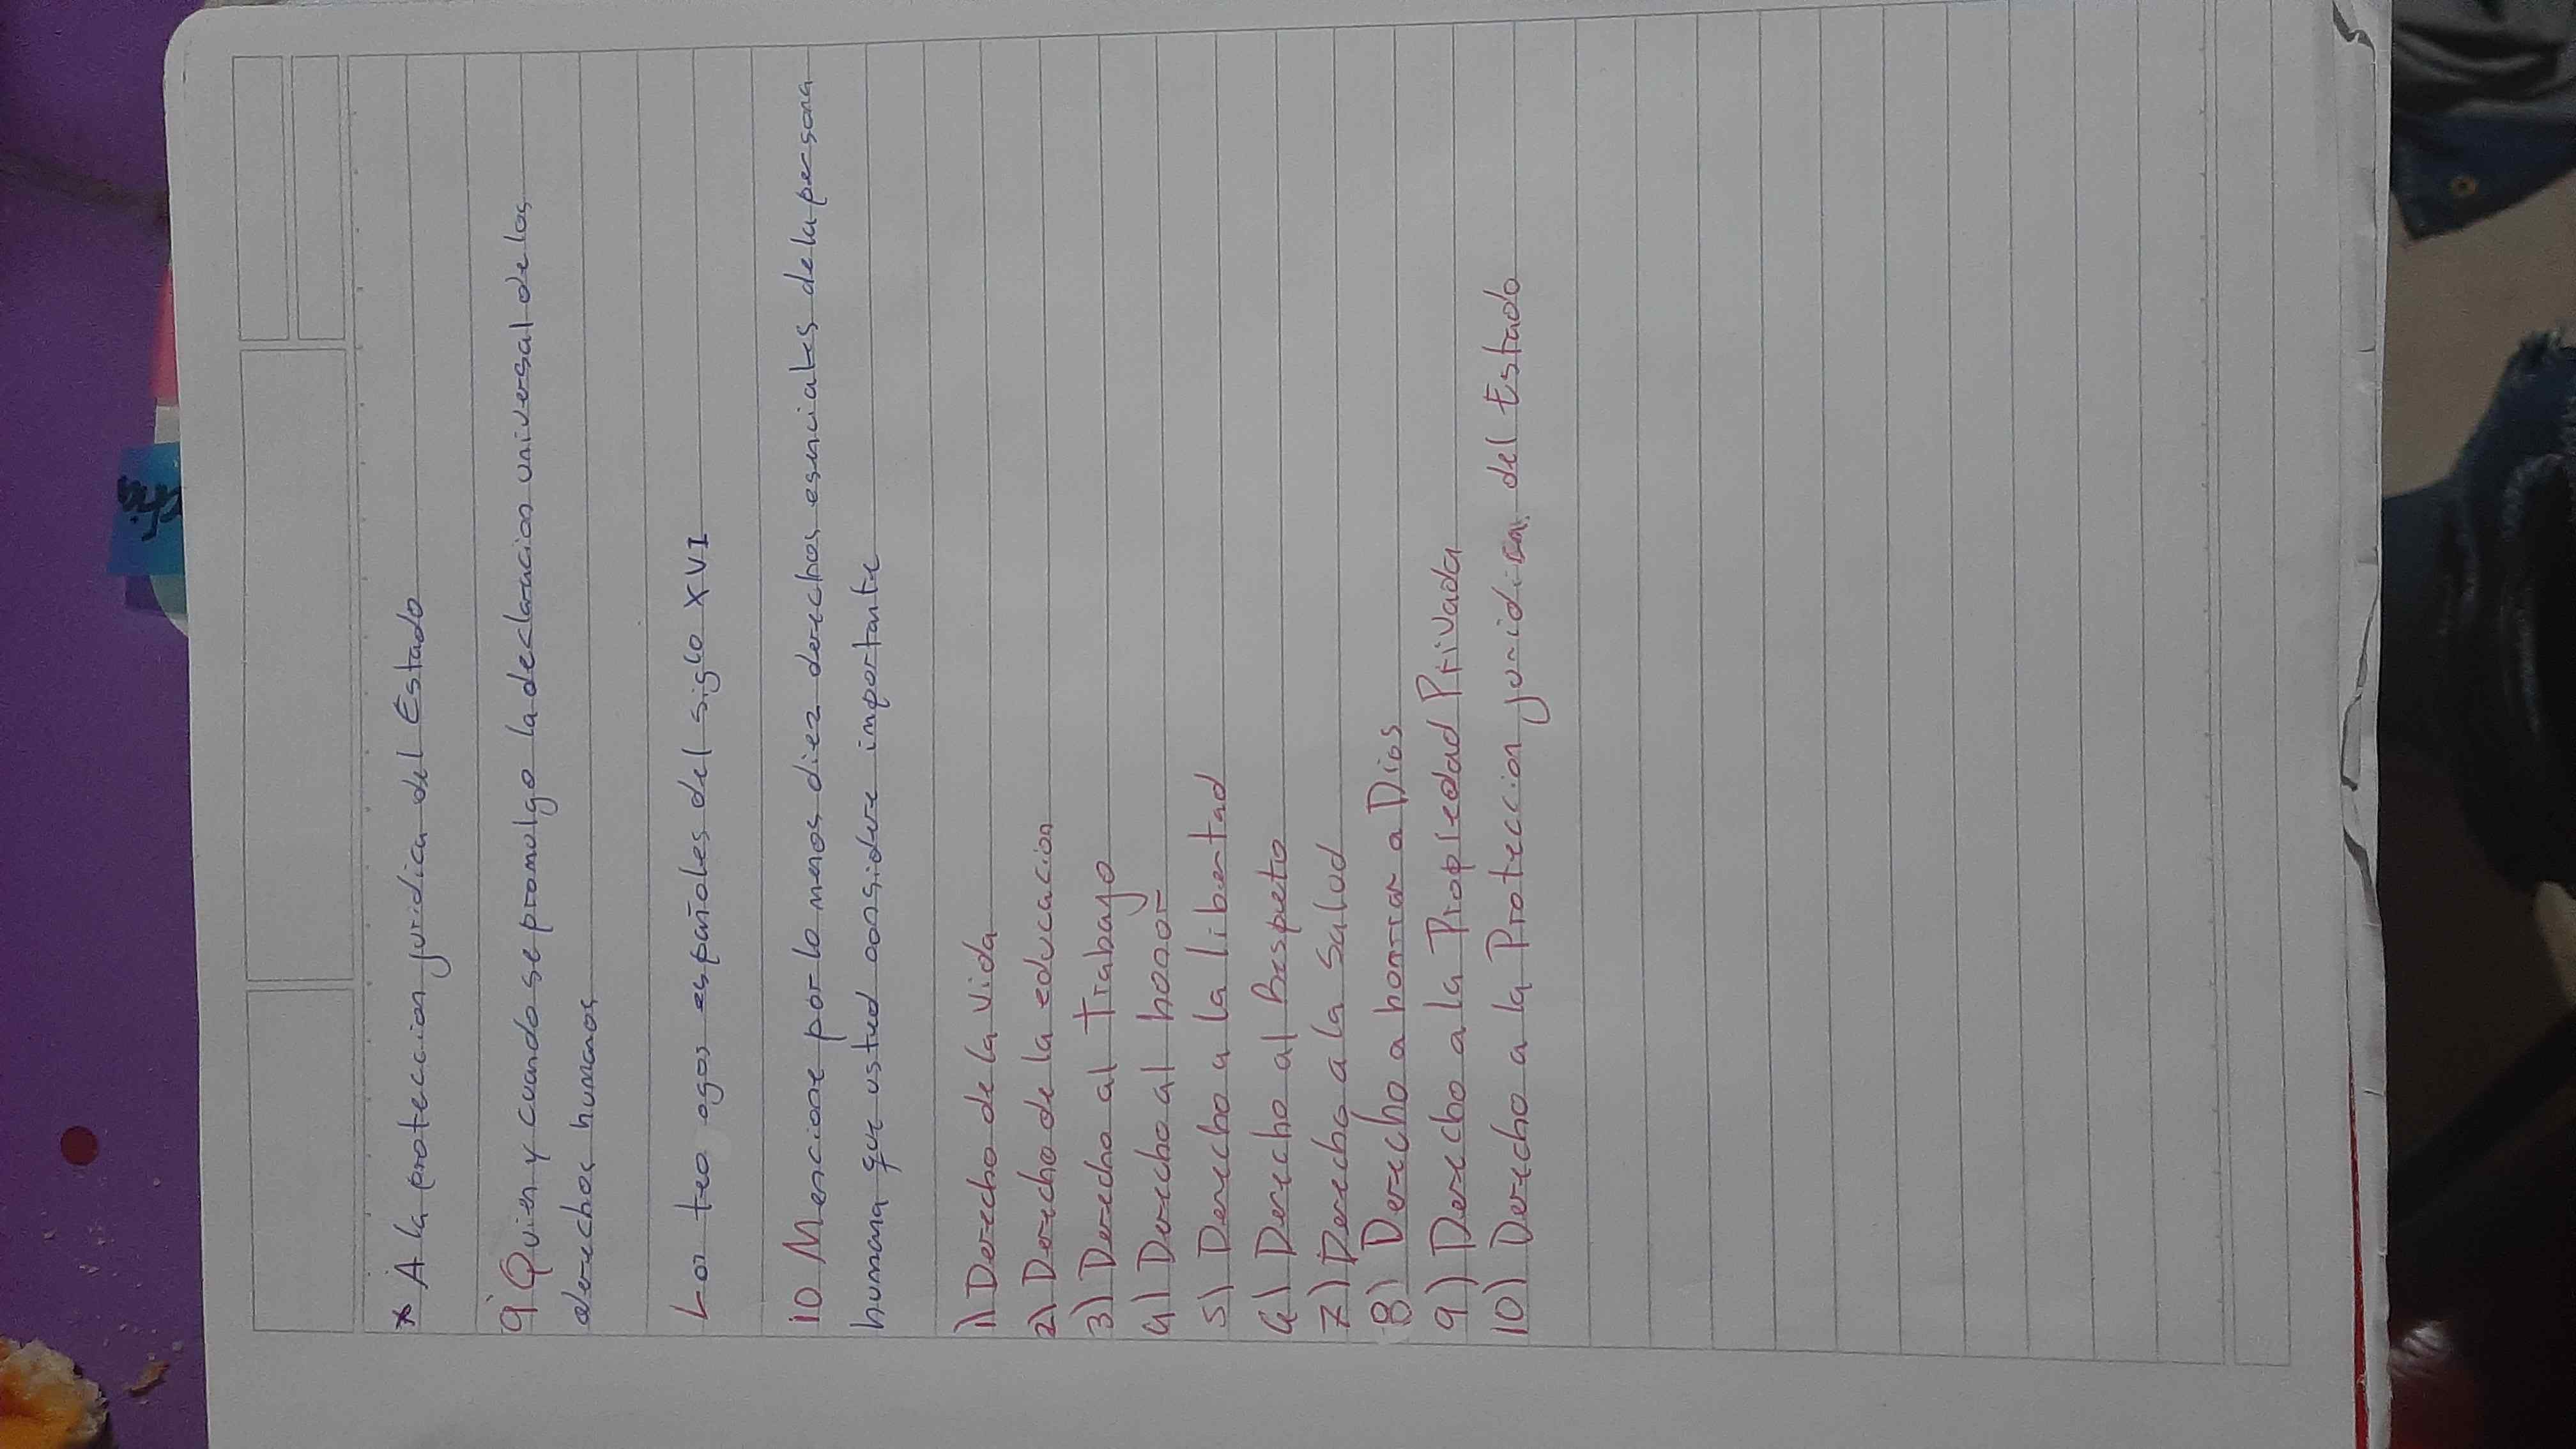 * A la proteccion juridica del Estado
9. Quien y cuando se promulgo la declaracion universal de los
derechos humanos
Lor teo ogos españoles del siglo XVI
10 Mencione por lo menos diez derechos esenciales de la persona
humana que usted considere importante
1) Derecho de la vida
2) Derecho de la educacion
3) Derecho al Trabajo
4) Derecho al honor
5) Derecho a la libertad
6) Derecho al Respeto
7) Derecho a la Salud
8) Derecho a honrar a Dios
9) Derecho a la Propiedad Privada
10) Derecho a la Proteccion juridica del Estado